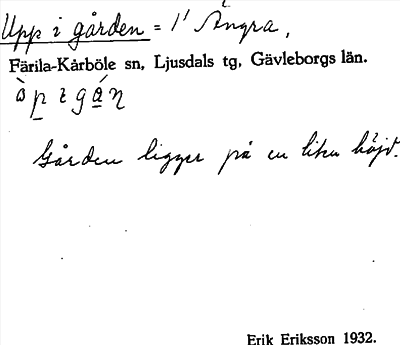 Upp i gården = 1' Ångra,
Färila-Kårböle sn, Ljusdals tg, Gävleborgs län.
Gården ligger på en liten höjd.
Erik Eriksson 1932.